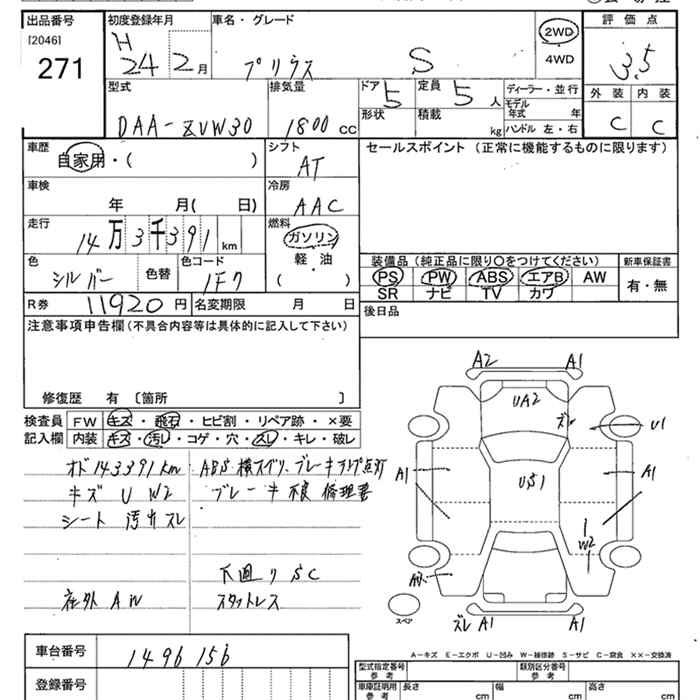 出品番号
[2046]
271
初度登録年月
H
24 2月
車名・グレード
プリウス S
2WD
4WD
評価点
3.5
外装 内装
C C
型式
DAA-ZVW30
排気量
1800 cc
ドア
5
定員
5 人
形状
積載
kg
ディーラー・並行
モデル
年式 年
ハンドル 左・右
車歴
自家用・( )
シフト
AT
セールスポイント (正常に機能するものに限ります)
車検
年 月( 日)
冷房
AAC
走行
14万3千391km
燃料
ガソリン
軽・油
( )
色
シルバー
色替
色コード
1F7
装備品 (純正品に限り〇をつけてください)
新車保証書
PS PW ABS エアB AW
SR ナビ TV カワ
有・無
R券
11920 円
名変期限 月 日
後日品
注意事項申告欄 (不具合内容等は具体的に記入して下さい)
修復歴 有 〔箇所 〕
検査員
記入欄
FW キズ・飛石・ヒビ割・リペア跡・×要
内装 キズ・汚レ・コゲ・穴・スレ・キレ・破レ
オド143391km
キズ U W2
シート 汚レ スレ
社外 AW
ABS 横スベリ、ブレーキランプ点灯
ブレーキ不良 修理要
下廻り SC
スタットレス
A2 A1
UA2
ズレ
U1
A1
US1
A1
W2
スペア
ズレ A1 A1
A-キズ E-エクボ U-凹み W-補修跡 S-サビ C-腐食 ××-交換済
車台番号
1496156
登録番号
型式指定番号
参考
類別区分番号
参考
車庫証明用
参考
長さ cm
幅 cm
高さ cm